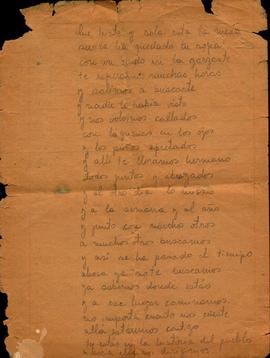 Que triste y sola está la mesa
nos ha quedado tu
con un nudo en la garganta
te esperamos muchas horas
y salimos a buscarte
y nadie te había visto
y nos volvimos callados
con lágrimas en los ojos
y los puños apretados
y allí te lloramos hermano
todos juntos y abrazados
y el otro día lo mismo
y a la semana y al año
y junto con muchos otros
a muchos otros buscamos
y así ha pasado el tiempo
ahora ya no te buscamos
ya sabemos donde estás
y a ese lugar caminamos
no importa cuanto nos cueste
allá estaremos
tu estás en la historia del pueblo
hacia ella nos dirigimos